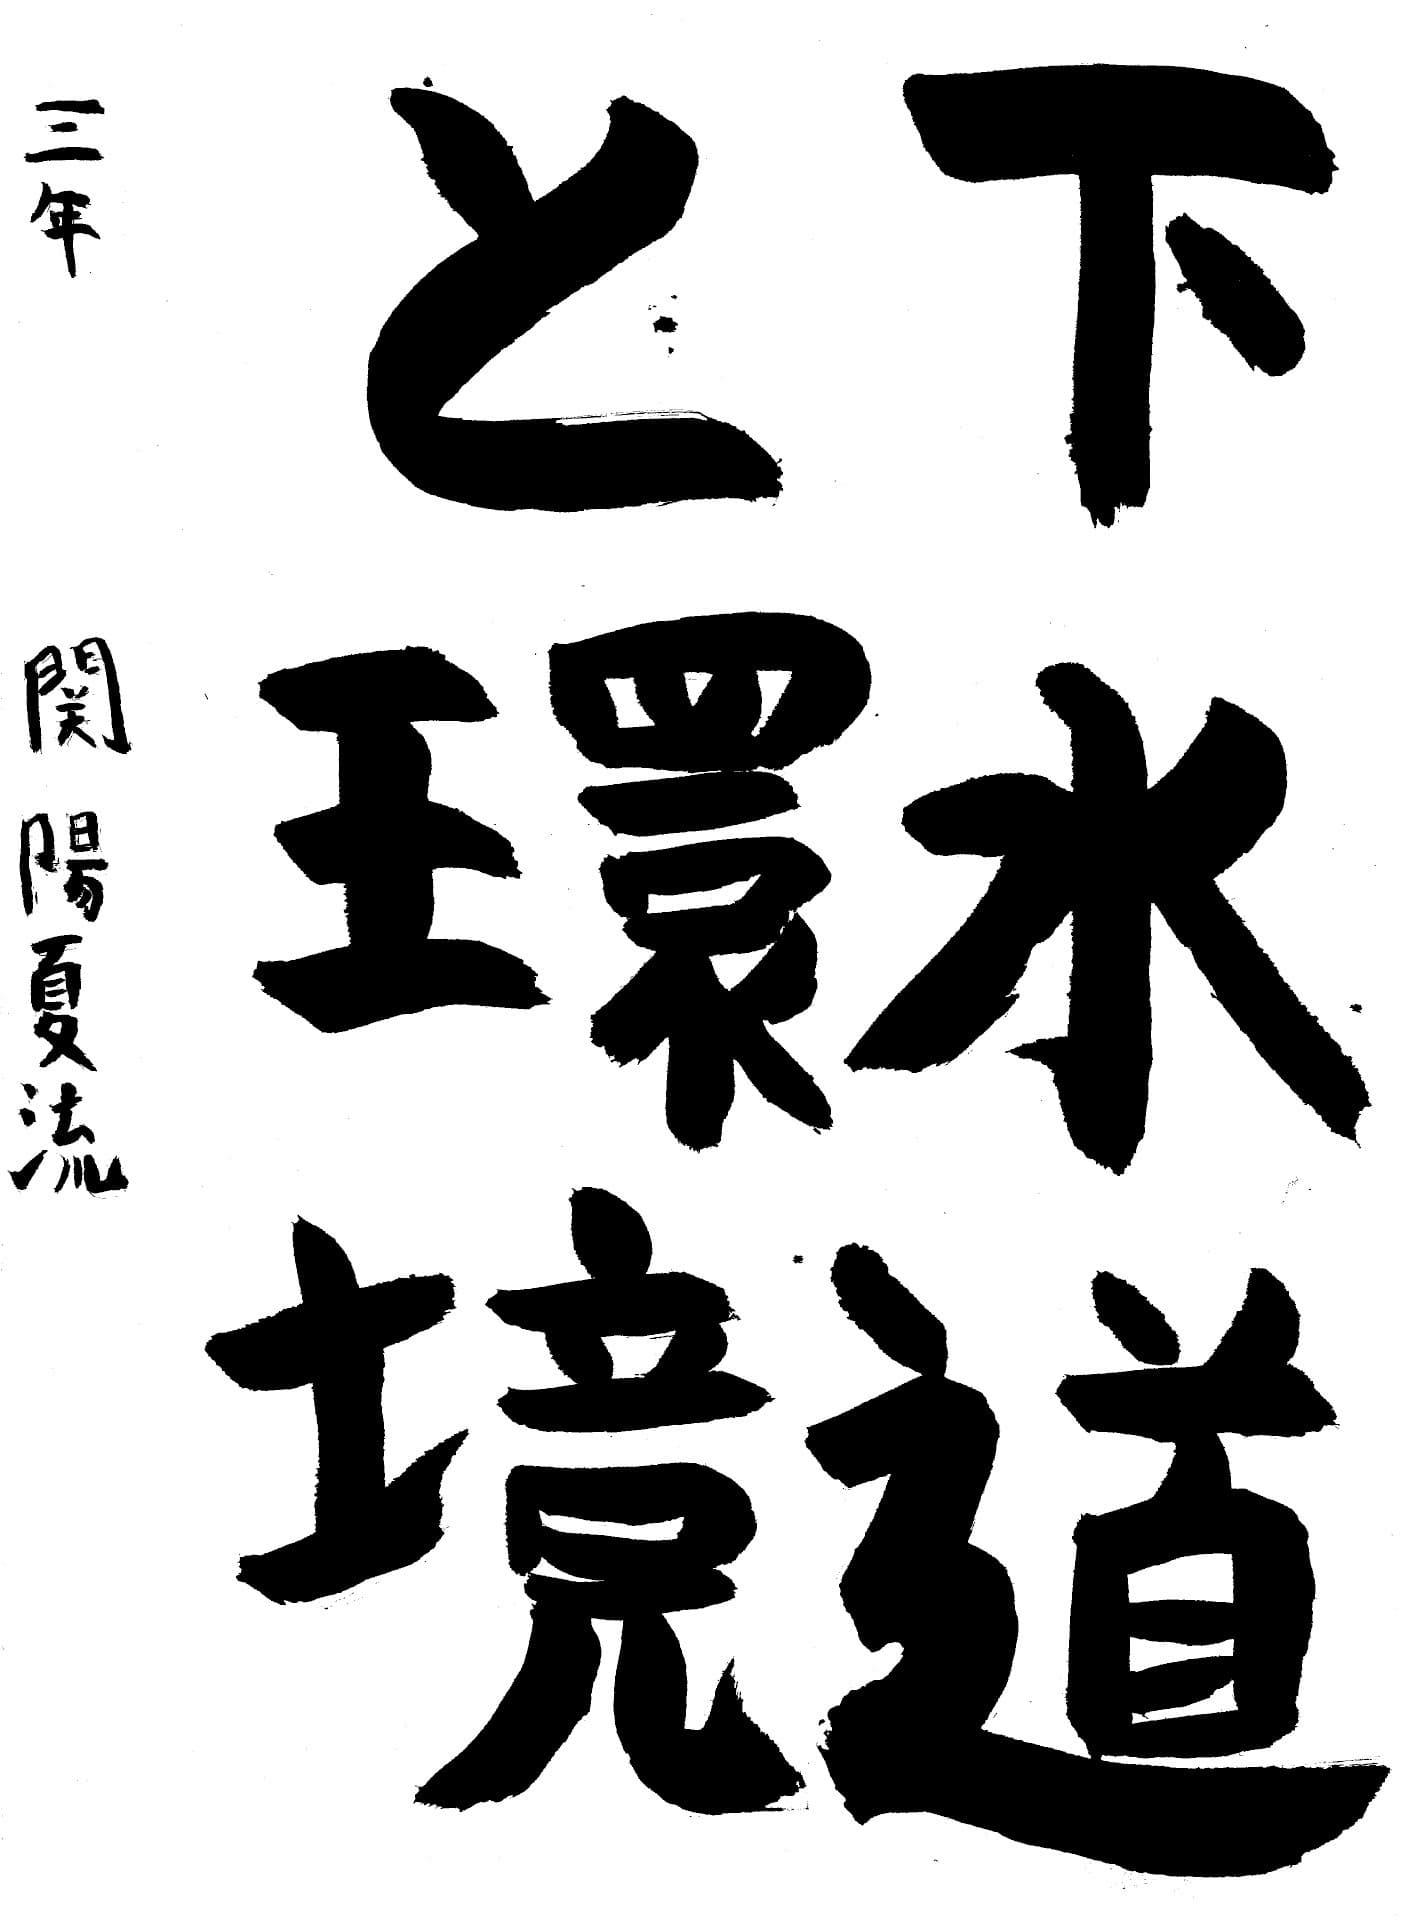 下水道
と環境
三年 関陽夏流